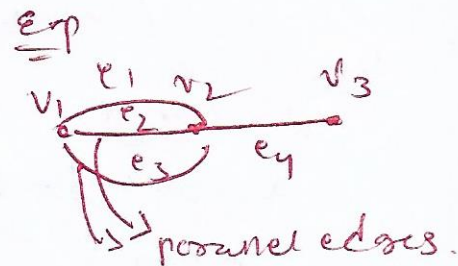 Exp
e1
v1 v2 v3
e2
e3 e4
parallel edges.